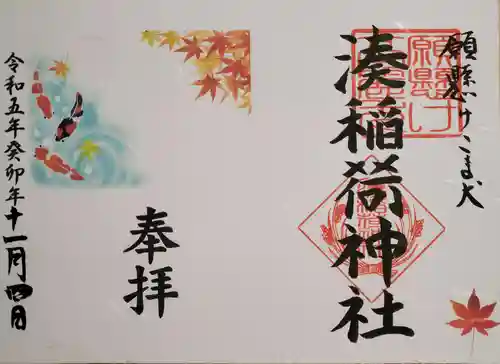 願懸けこま犬
湊稲荷神社
奉拝
令和五年癸卯年十一月四日